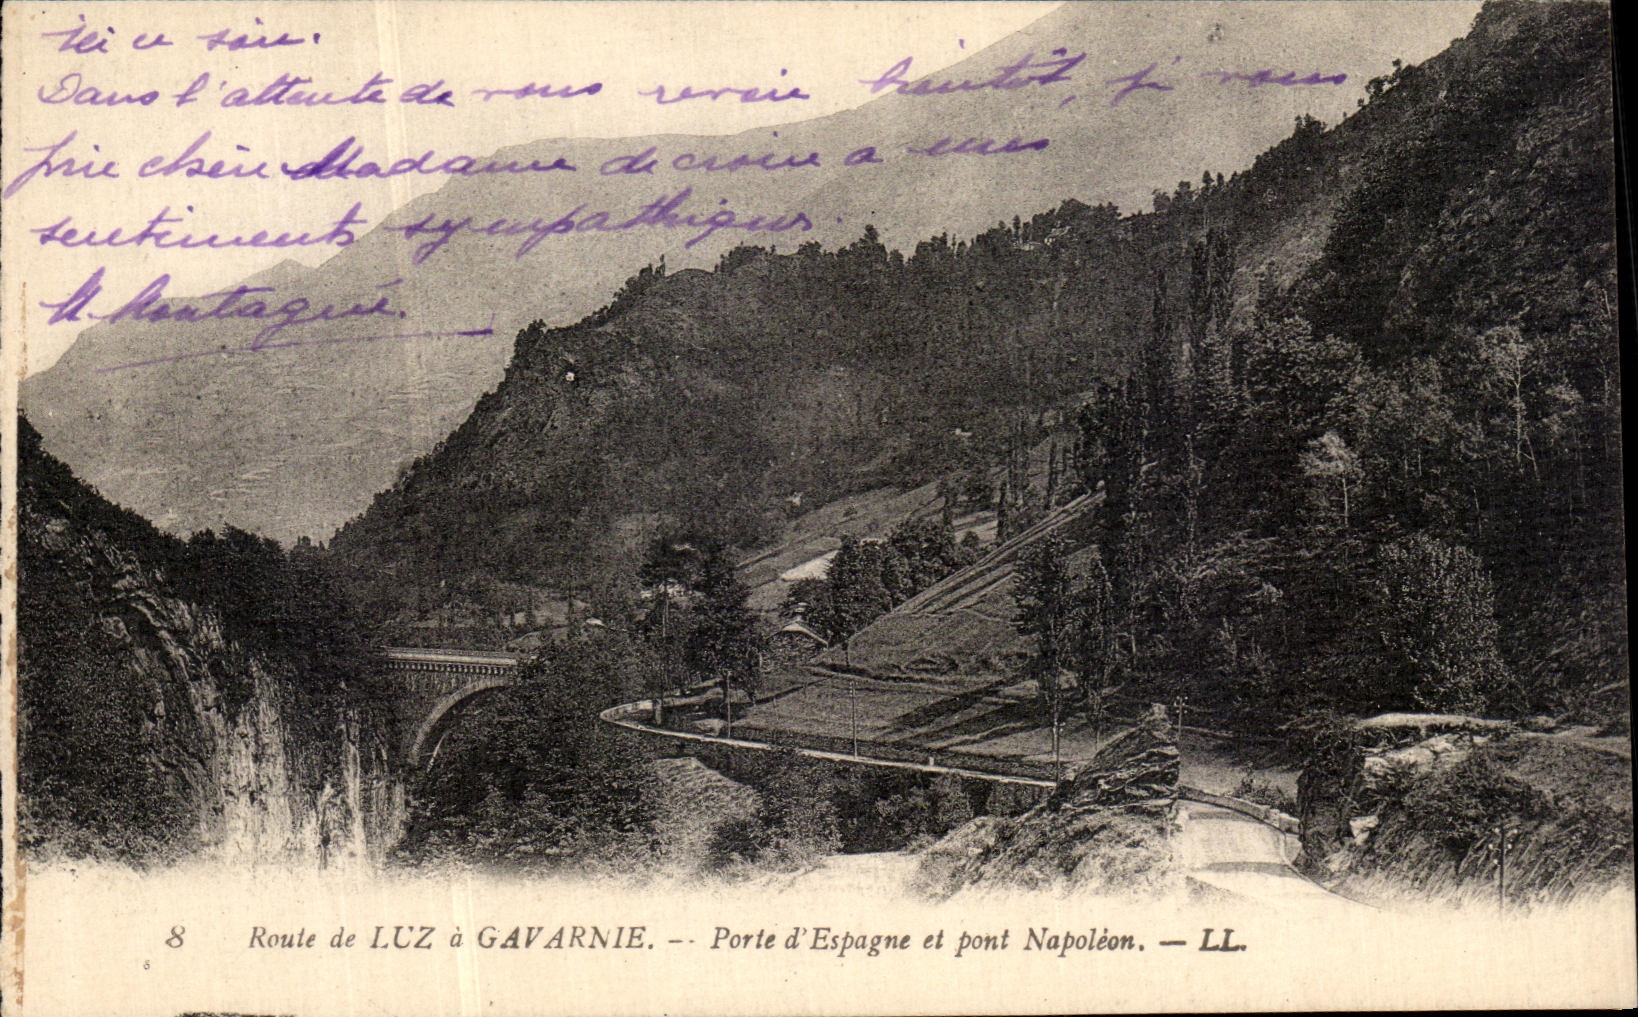 ici ce soir.
Dans l'attente de vous revoir bientôt, je vous
prie chère Madame de croire a mes
sentiments sympathiques.
M. Montagné.
8 Route de LUZ à GAVARNIE. -- Porte d'Espagne et pont Napoléon. — LL.